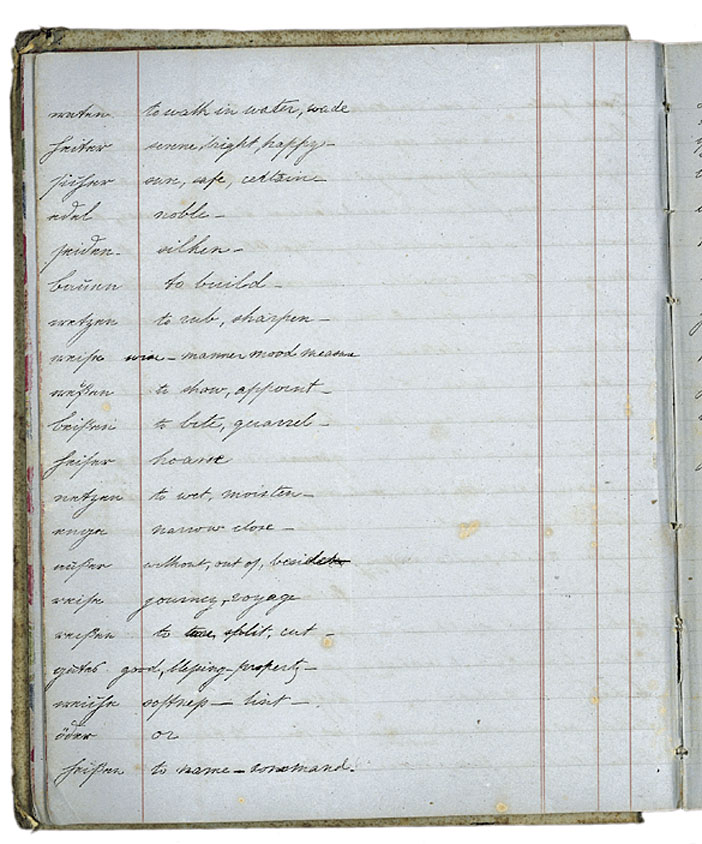 waten to walk in water, wade
heiter serene, bright, happy-
sicher sure, safe, certain-
edel noble-
seiden- silken-
bauen to build-
wetzen to rub, sharpen-
weise wise- manner mood measure
weißen to show, appoint-
beißen to bite, quarrel-
heiser hoarse
netzen to wet, moisten-
enge narrow close-
außer without, out of, besides
reise journey, voyage
reißen to tear, split, cut-
gutes good, blessing- property-
weiche softness- lint-
öder or
heißen to name- command.